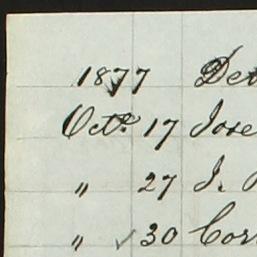 1877 Det
Octr. 17 Jose
" 27 J.
" ✓ 30 Cor